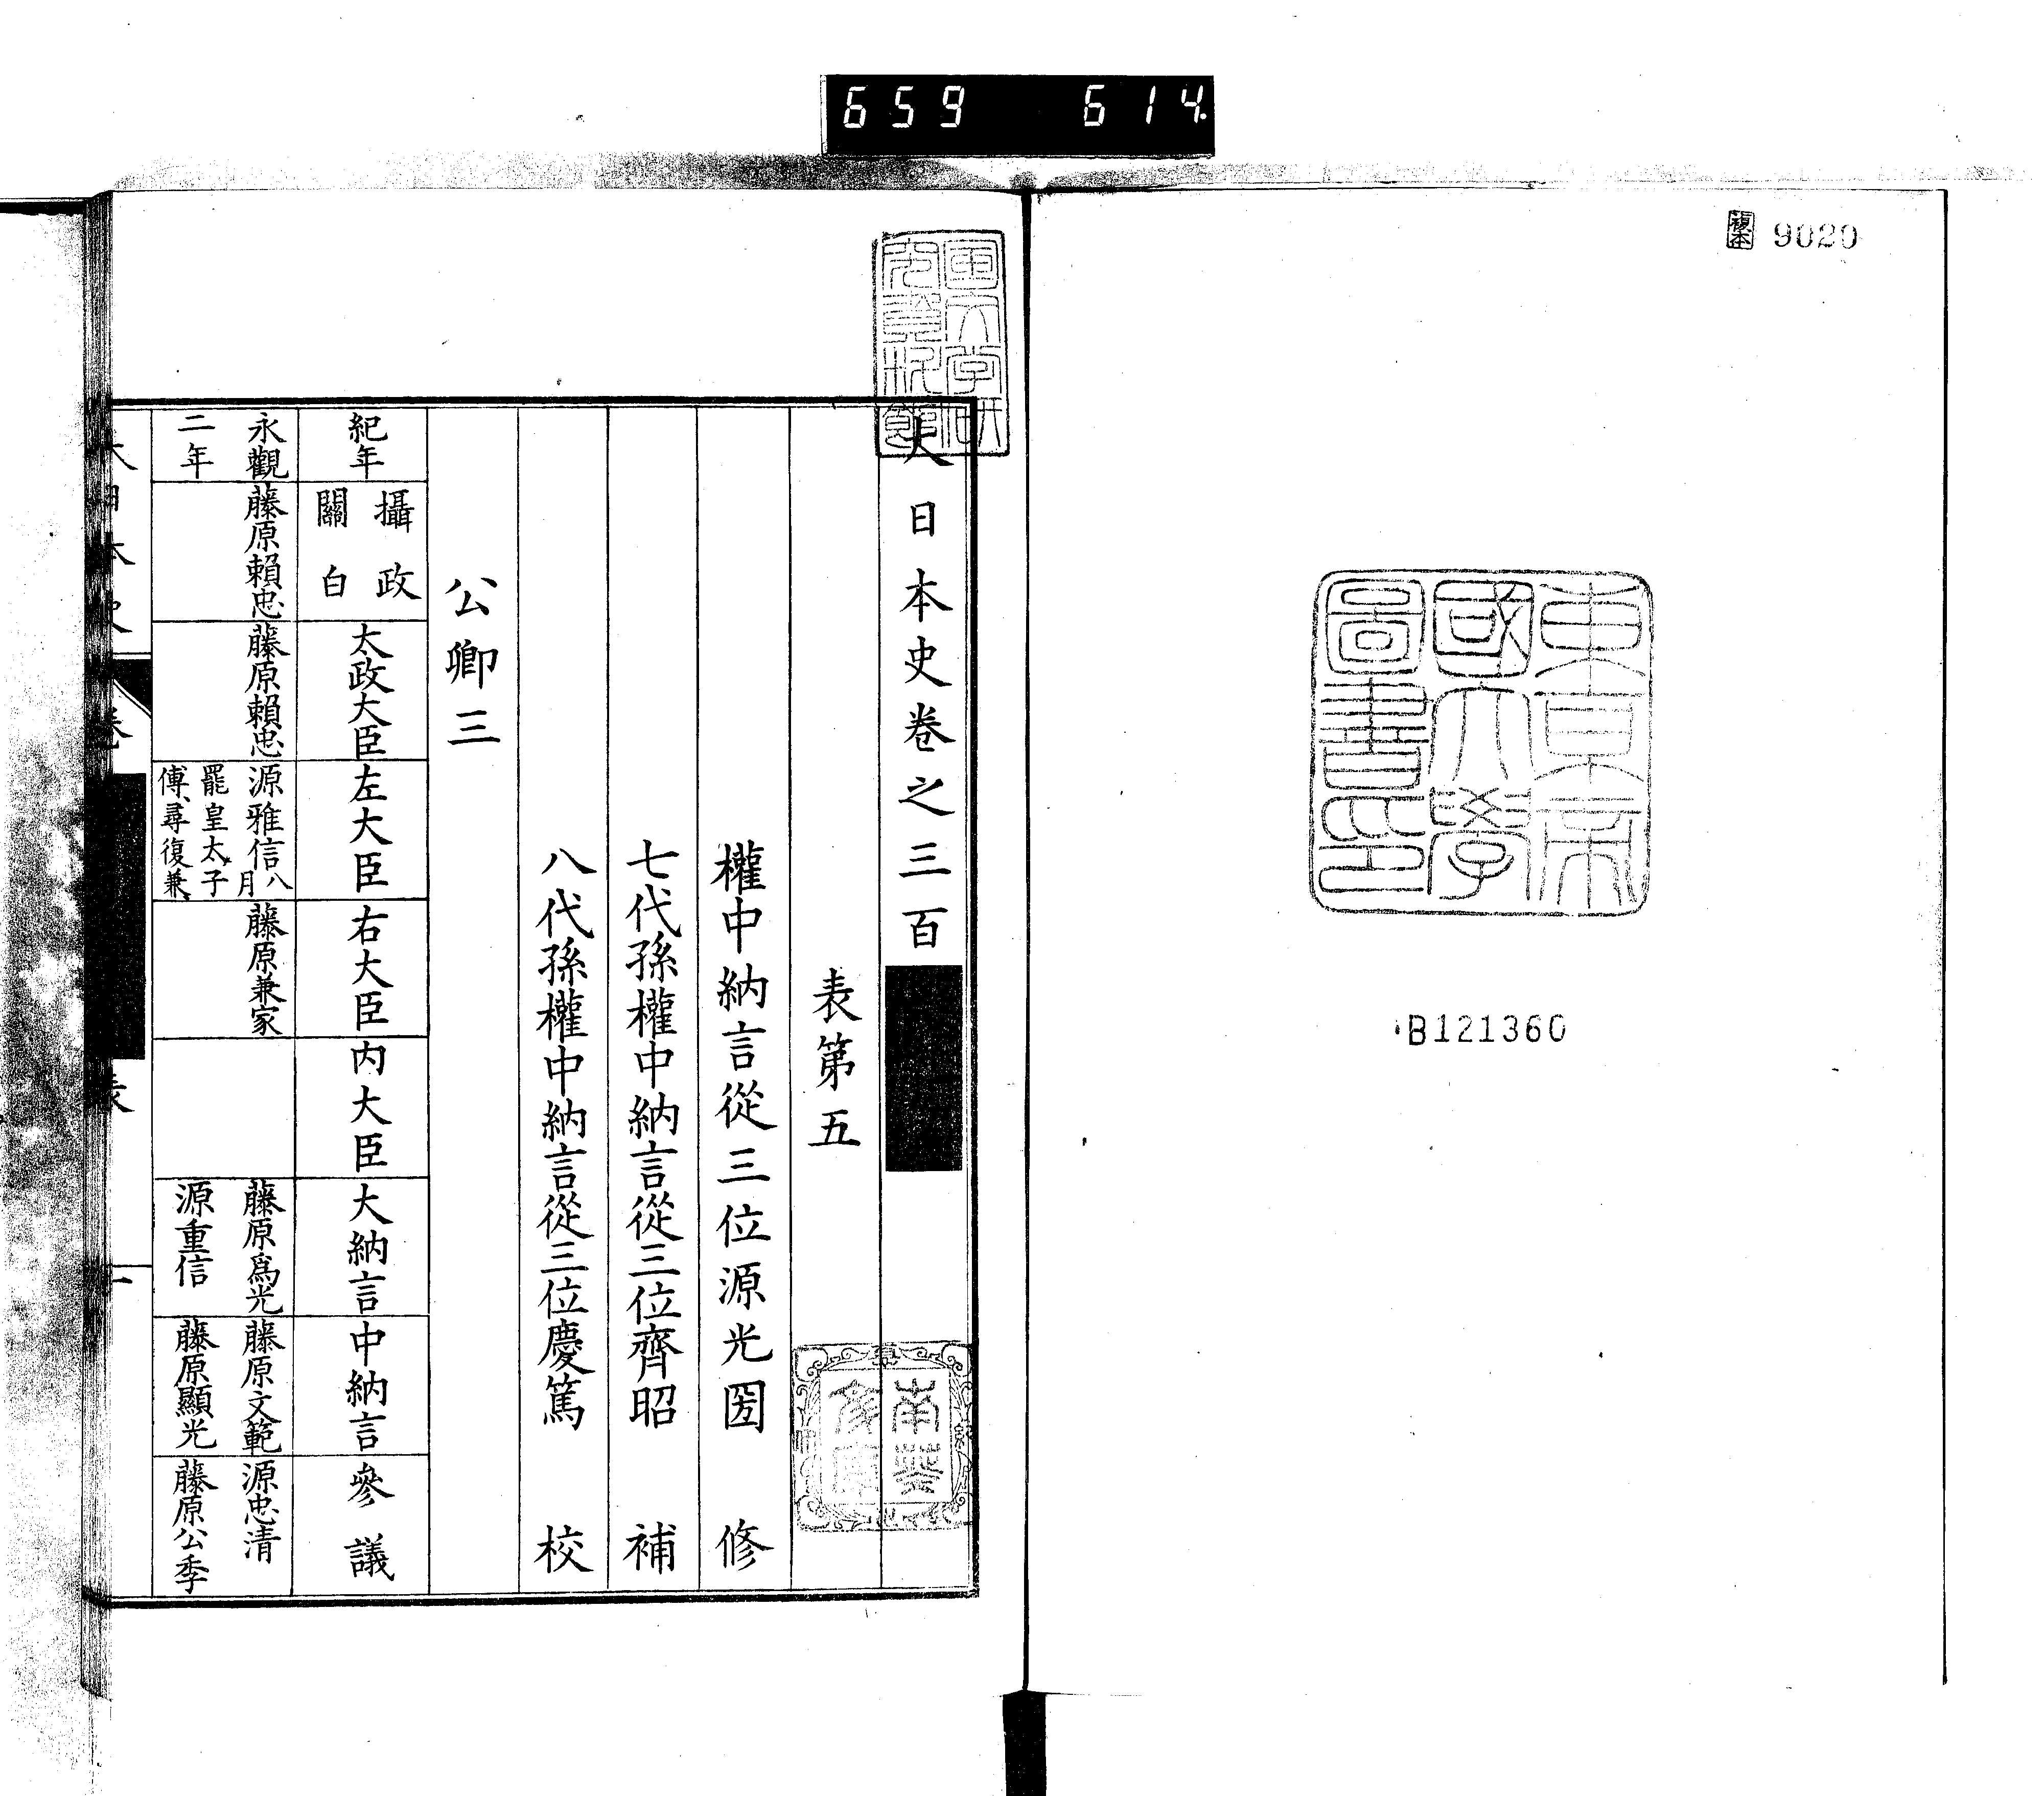 659 614.
複本 9020
東京帝
國大學
圖書印
B121360
大日本史卷之三百
表第五
權中納言從三位源光圀 修
七代孫權中納言從三位齊昭 補
八代孫權中納言從三位慶篤 校
公卿三
紀年
攝政
關白
太政大臣
左大臣
右大臣
内大臣
大納言
中納言
參議
永觀
二年
藤原賴忠
藤原賴忠
源雅信八月
罷皇太子
傅、尋復兼、
藤原兼家
藤原爲光
源重信
藤原文範
藤原顯光
源忠清
藤原公季